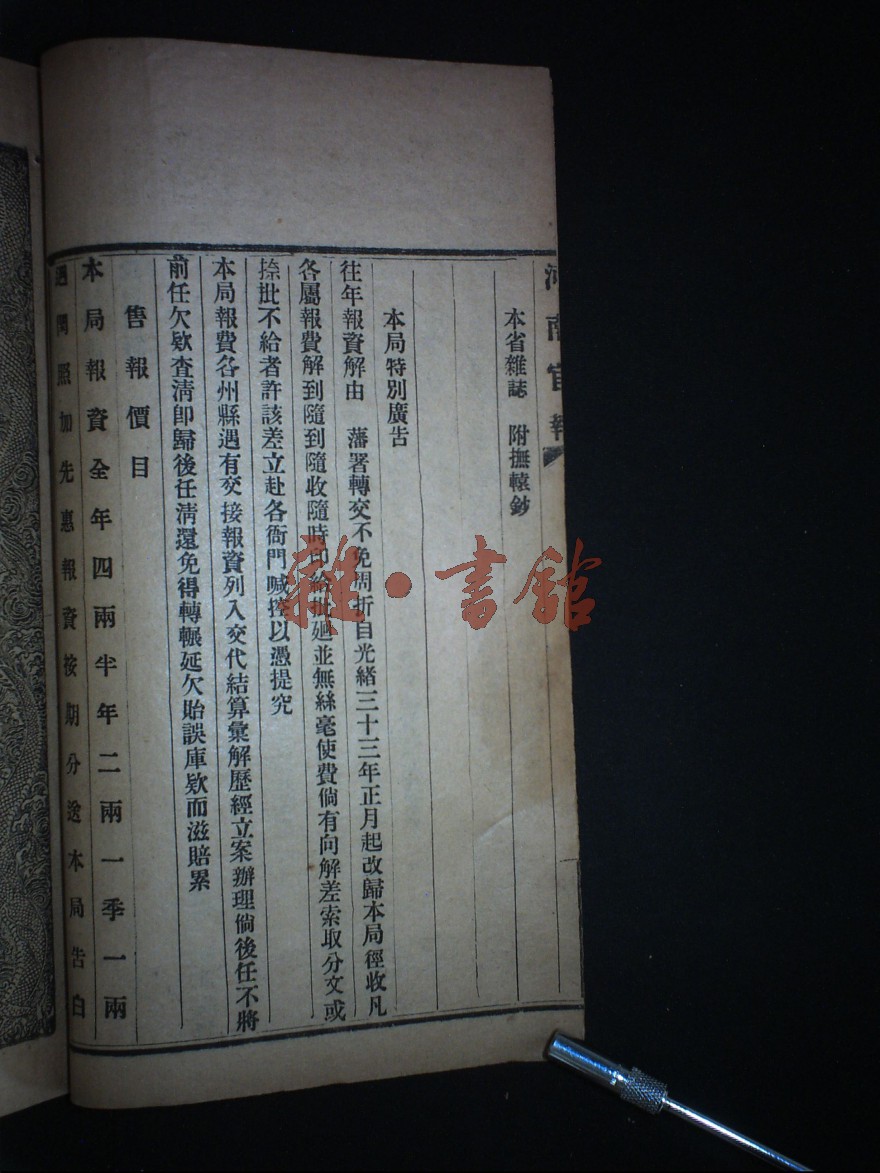 河南官報
本省雜誌　附撫轅鈔
本局特別廣告
往年報資解由　藩署轉交不免周折自光緒三十三年正月起改歸本局徑收凡
各屬報費解到隨到隨收隨時印給批廻並無絲毫使費倘有向解差索取分文或
捺批不給者許該差立赴各衙門喊控以憑提究
本局報費各州縣遇有交接報資列入交代結算彙解歷經立案辦理倘後任不將
前任欠欵查清卽歸後任淸還免得轉輾延欠貽誤庫欵而滋賠累
售報價目
本局報資全年四兩半年二兩一季一兩
遇閏照加先惠報資按期分送本局告白
雜·書舘